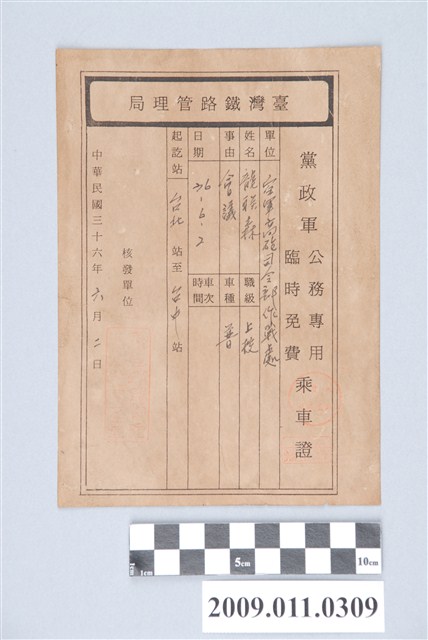 局理管路鐵灣臺
黨政軍 公務專用 臨時免費 乘車證
單位 空軍高砲司令部作戰處
姓名 龍驤森 職級 上校
事由 會議 車種 普
日期 36.6.2 車次時間
起訖站 台北 站至 台中 站
核發單位
中華民國三十六年六月二日
1cm
5cm
10cm
2009.011.0309